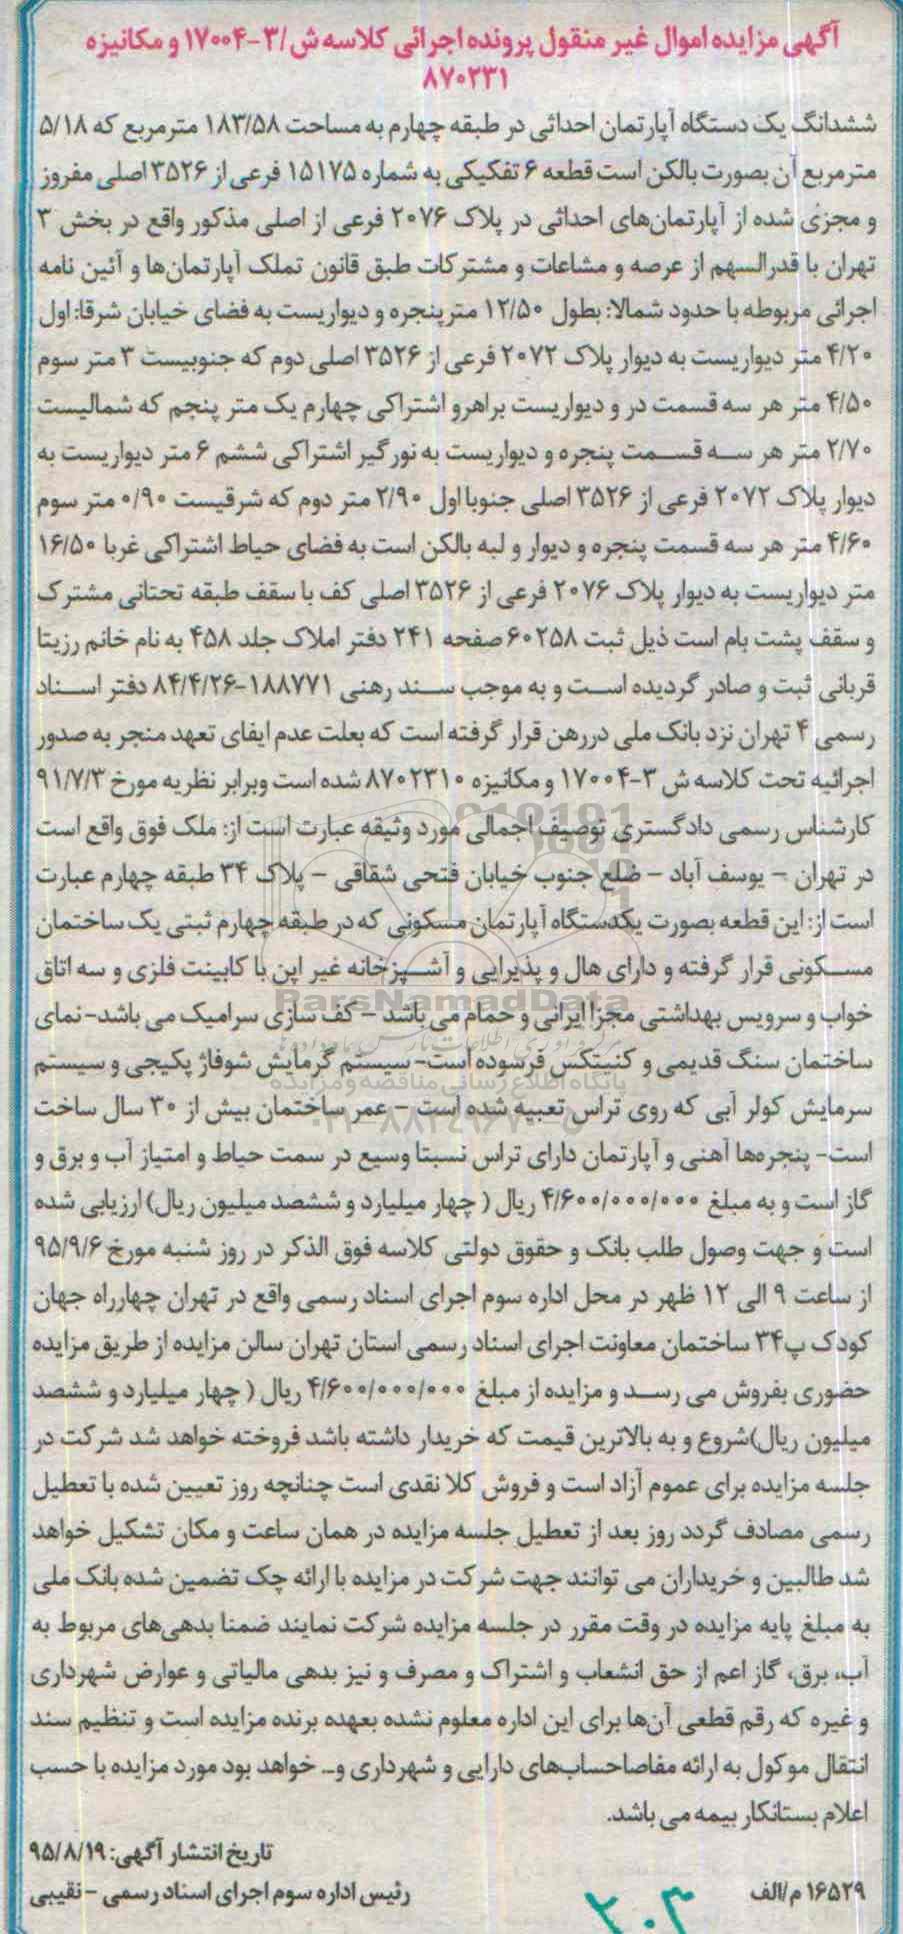 آگهی مزایده اموال غیر منقول پرونده اجرائی کلاسه ش/۳-۱۷۰۰۴ و مکانیزه
۸۷۰۲۳۱
ششدانگ یک دستگاه آپارتمان احداثی در طبقه چهارم به مساحت ۱۸۳/۵۸ مترمربع که ۵/۱۸
مترمربع آن بصورت بالکن است قطعه ۶ تفکیکی به شماره ۱۵۱۷۵ فرعی از ۳۵۲۶ اصلی مفروز
و مجزی شده از آپارتمان‌های احداثی در پلاک ۲۰۷۶ فرعی از اصلی مذکور واقع در بخش ۳
تهران با قدرالسهم از عرصه و مشاعات و مشترکات طبق قانون تملک آپارتمان‌ها و آئین نامه
اجرائی مربوطه با حدود شمالا: بطول ۱۲/۵۰ مترپنجره و دیواریست به فضای خیابان شرقا: اول
۴/۲۰ متر دیواریست به دیوار پلاک ۲۰۷۲ فرعی از ۳۵۲۶ اصلی دوم که جنوبیست ۳ متر سوم
۴/۵۰ متر هر سه قسمت در و دیواریست براهرو اشتراکی چهارم یک متر پنجم که شمالیست
۲/۷۰ متر هر سه قسمت پنجره و دیواریست به نورگیر اشتراکی ششم ۶ متر دیواریست به
دیوار پلاک ۲۰۷۲ فرعی از ۳۵۲۶ اصلی جنوبا اول ۲/۹۰ متر دوم که شرقیست ۰/۹۰ متر سوم
۴/۶۰ متر هر سه قسمت پنجره و دیوار و لبه بالکن است به فضای حیاط اشتراکی غربا ۱۶/۵۰
متر دیواریست به دیوار پلاک ۲۰۷۶ فرعی از ۳۵۲۶ اصلی کف با سقف طبقه تحتانی مشترک
و سقف پشت بام است ذیل ثبت ۶۰۲۵۸ صفحه ۲۴۱ دفتر املاک جلد ۴۵۸ به نام خانم رزیتا
قربانی ثبت و صادر گردیده است و به موجب سند رهنی ۱۸۸۷۷۱-۸۴/۴/۲۶ دفتر اسناد
رسمی ۴ تهران نزد بانک ملی دررهن قرار گرفته است که بعلت عدم ایفای تعهد منجر به صدور
اجرائیه تحت کلاسه ش ۳-۱۷۰۰۴ و مکانیزه ۸۷۰۲۳۱۰ شده است وبرابر نظریه مورخ ۹۱/۷/۳
کارشناس رسمی دادگستری توصیف اجمالی مورد وثیقه عبارت است از: ملک فوق واقع است
در تهران – یوسف آباد – ضلع جنوب خیابان فتحی شقاقی – پلاک ۳۴ طبقه چهارم عبارت
است از: این قطعه بصورت یکدستگاه آپارتمان مسکونی که در طبقه چهارم ثبتی یک ساختمان
مسکونی قرار گرفته و دارای هال و پذیرایی و آشپزخانه غیر اپن با کابینت فلزی و سه اتاق
خواب و سرویس بهداشتی مجزا ایرانی و حمام می باشد – کف سازی سرامیک می باشد-نمای
ساختمان سنگ قدیمی و کنیتکس فرسوده است- سیستم گرمایش شوفاژ پکیجی و سیستم
سرمایش کولر آبی که روی تراس تعبیه شده است – عمر ساختمان بیش از ۳۰ سال ساخت
است- پنجره‌ها آهنی و آپارتمان دارای تراس نسبتا وسیع در سمت حیاط و امتیاز آب و برق و
گاز است و به مبلغ ۴/۶۰۰/۰۰۰/۰۰۰ ریال ( چهار میلیارد و ششصد میلیون ریال) ارزیابی شده
است و جهت وصول طلب بانک و حقوق دولتی کلاسه فوق الذکر در روز شنبه مورخ ۹۵/۹/۶
از ساعت ۹ الی ۱۲ ظهر در محل اداره سوم اجرای اسناد رسمی واقع در تهران چهارراه جهان
کودک پ۳۴ ساختمان معاونت اجرای اسناد رسمی استان تهران سالن مزایده از طریق مزایده
حضوری بفروش می رسد و مزایده از مبلغ ۴/۶۰۰/۰۰۰/۰۰۰ ریال ( چهار میلیارد و ششصد
میلیون ریال)شروع و به بالاترین قیمت که خریدار داشته باشد فروخته خواهد شد شرکت در
جلسه مزایده برای عموم آزاد است و فروش کلا نقدی است چنانچه روز تعیین شده با تعطیل
رسمی مصادف گردد روز بعد از تعطیل جلسه مزایده در همان ساعت و مکان تشکیل خواهد
شد طالبین و خریداران می توانند جهت شرکت در مزایده با ارائه چک تضمین شده بانک ملی
به مبلغ پایه مزایده در وقت مقرر در جلسه مزایده شرکت نمایند ضمنا بدهی‌های مربوط به
آب، برق، گاز اعم از حق انشعاب و اشتراک و مصرف و نیز بدهی مالیاتی و عوارض شهرداری
و غیره که رقم قطعی آن‌ها برای این اداره معلوم نشده بعهده برنده مزایده است و تنظیم سند
انتقال موکول به ارائه مفاصاحساب‌های دارایی و شهرداری و... خواهد بود مورد مزایده با حسب
اعلام بستانکار بیمه می باشد.
تاریخ انتشار آگهی: ۹۵/۸/۱۹
۱۶۵۲۹ م/الف
رئیس اداره سوم اجرای اسناد رسمی – نقیبی
۲۰۳
ParsNamadData
پایگاه اطلاع رسانی مناقصه و مزایده